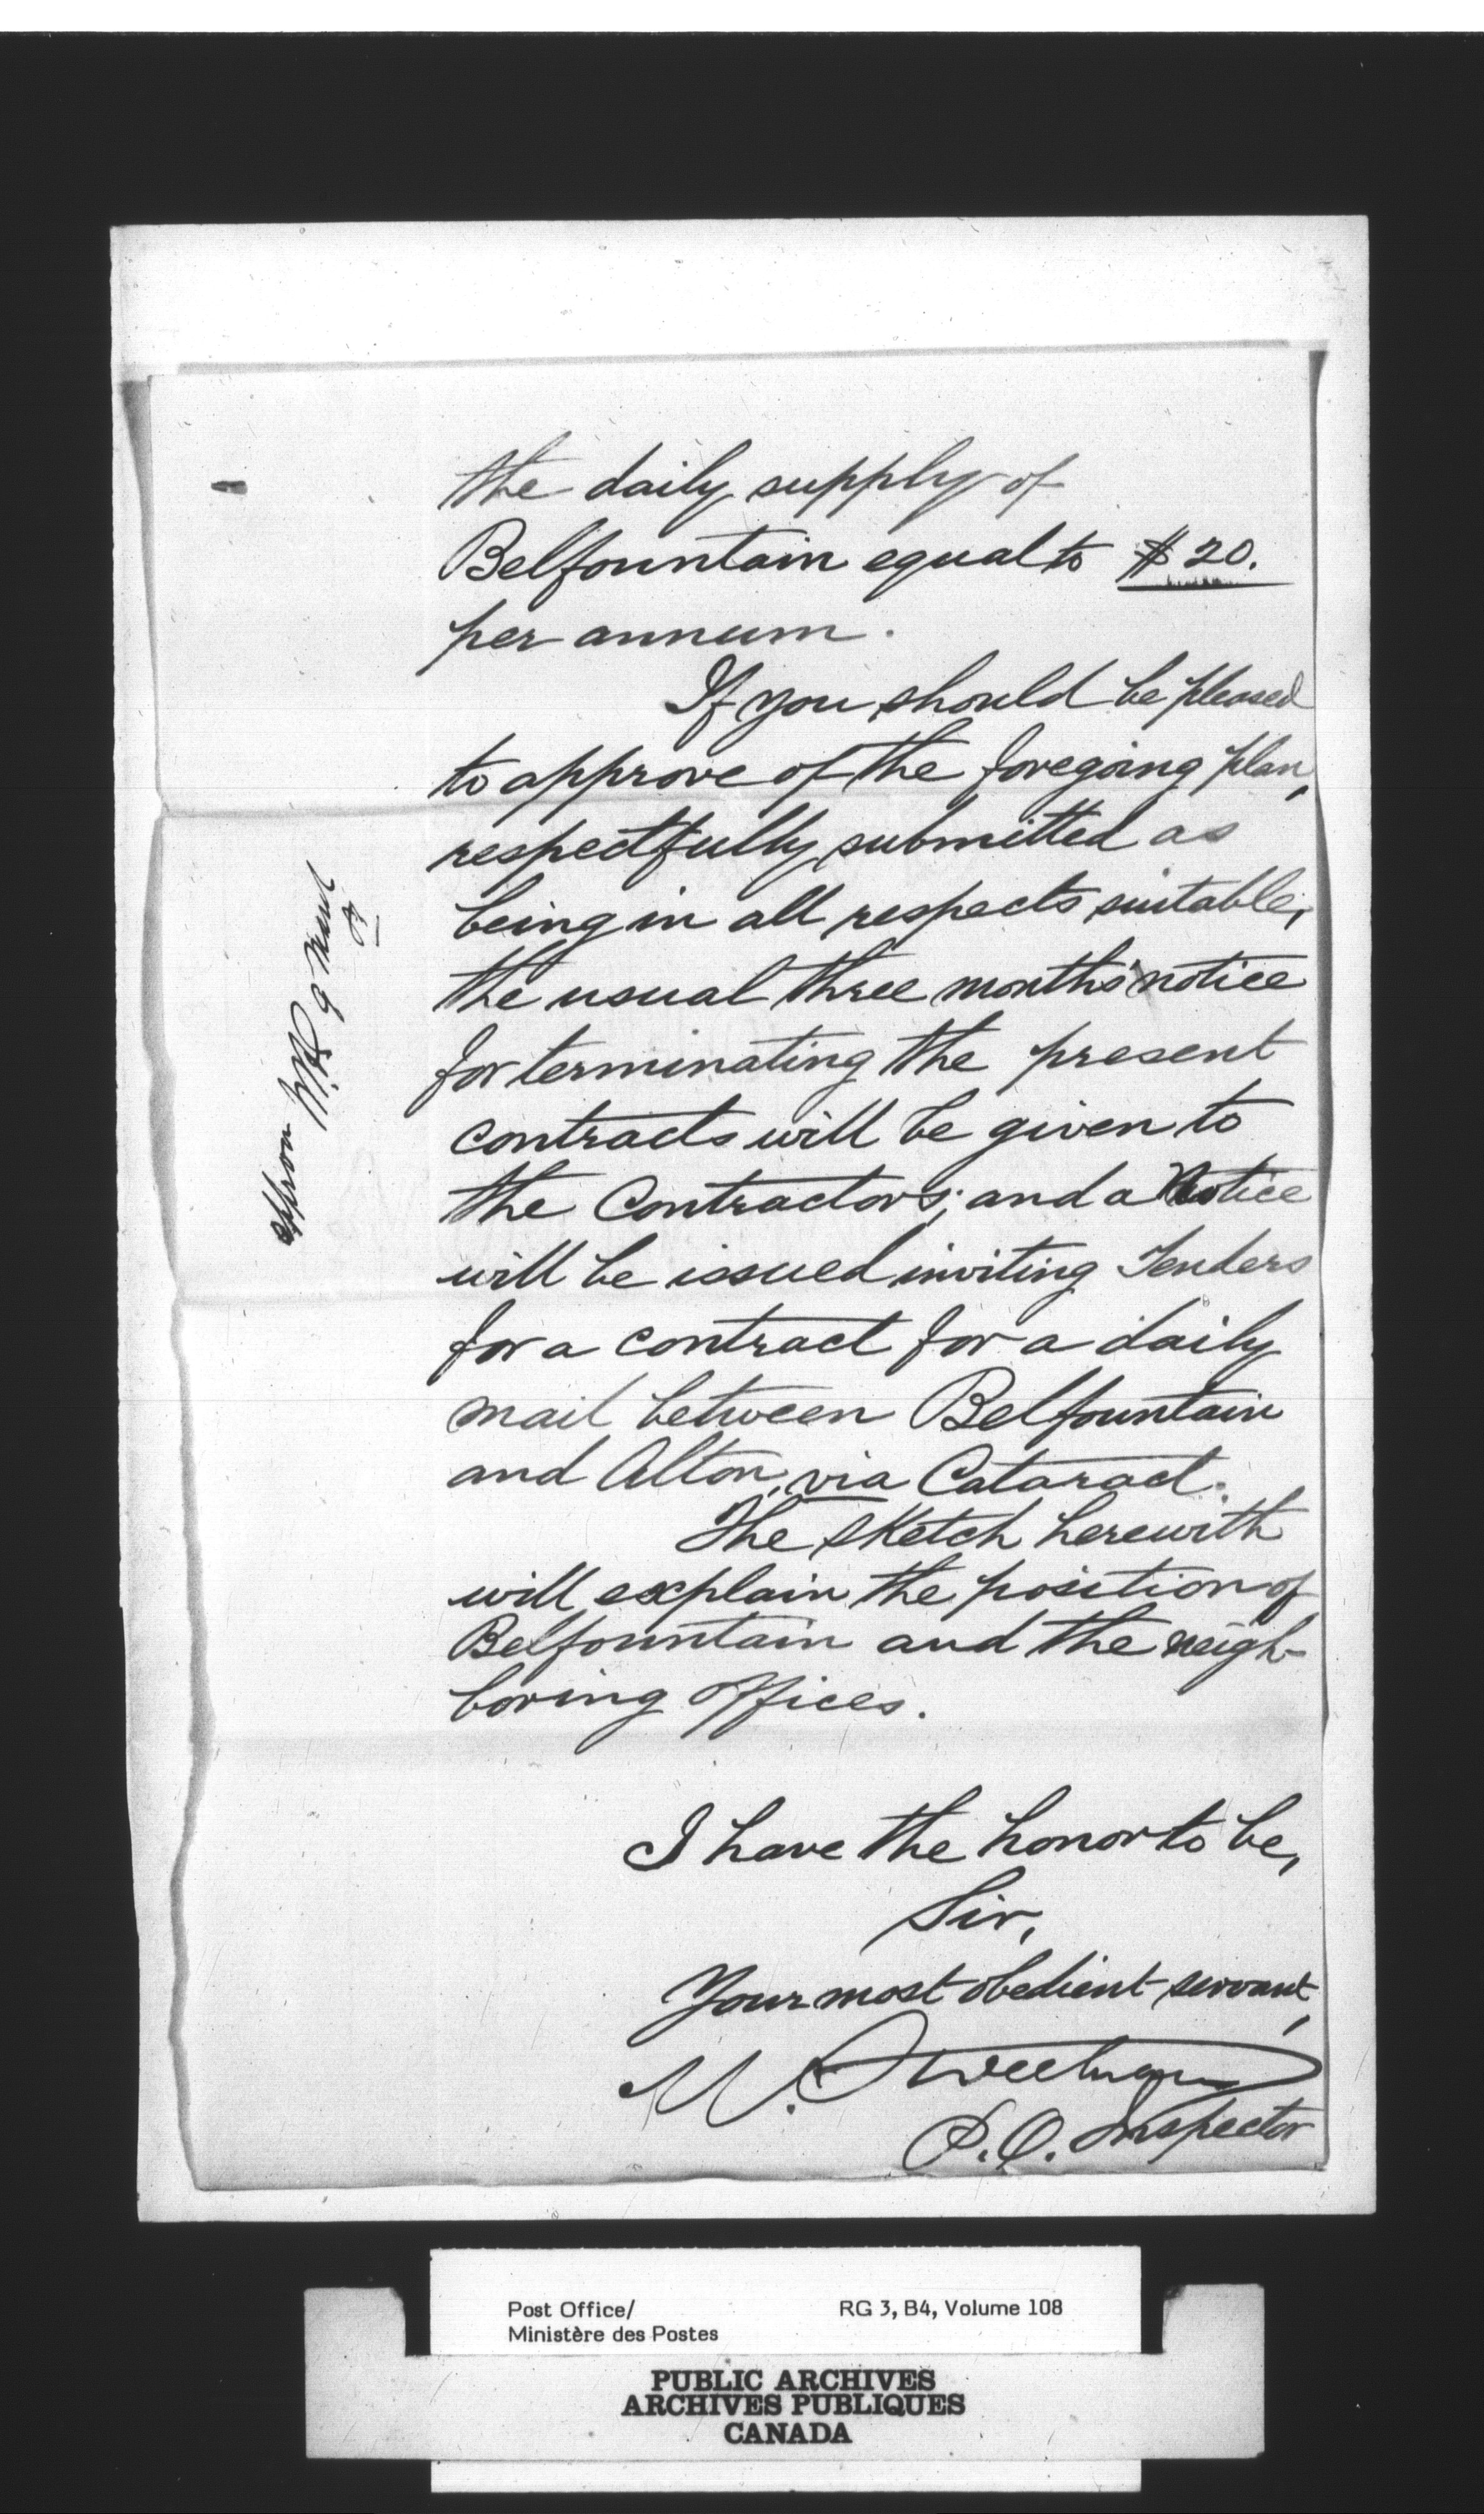 the daily supply of
Belfountain equal to $20.
per annum.
If you should be pleased
to approve of the foregoing plan,
respectfully submitted as
being in all respects suitable,
the usual three months' notice
for terminating the present
contracts will be given to
the Contractors; and a Notice
will be issued inviting Tenders
for a contract for a daily
mail between Belfountain
and Alton, via Cataract.
The sketch herewith
will explain the position of
Belfountain and the neigh-
boring offices.
I have the honor to be,
Sir,
Your most obedient servant,
M. Sweetnam
P.O. Inspector
Post Office/
Ministère des Postes
RG 3, B4, Volume 108
PUBLIC ARCHIVES
ARCHIVES PUBLIQUES
CANADA